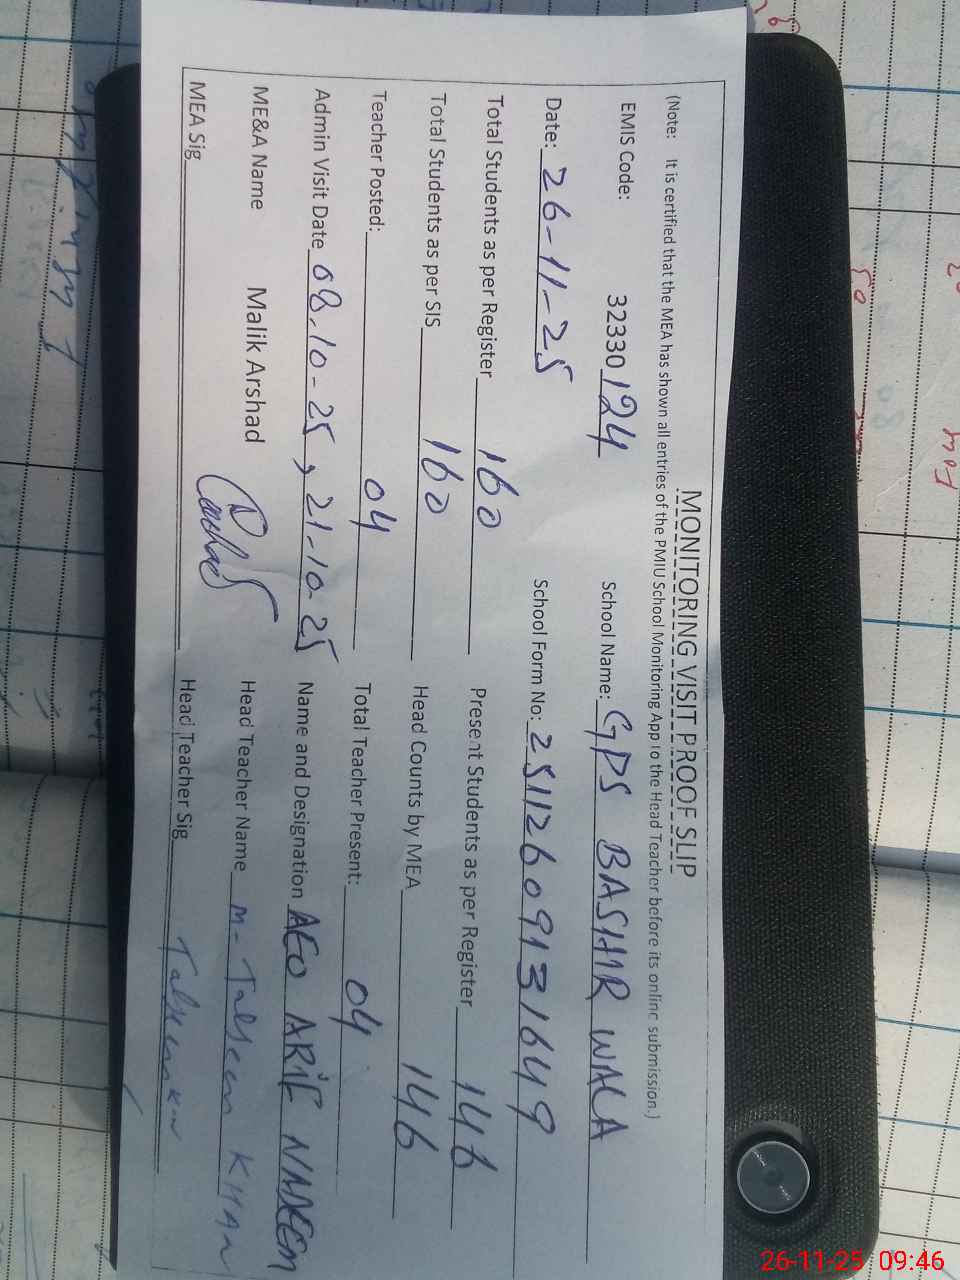 MONITORING VISIT PROOF SLIP
(Note: It is certified that the MEA has shown all entries of the PMIU School Monitoring App to the Head Teacher before its online submission.)
EMIS Code: 32330124 School Name: GPS BASHIR WALA
Date: 26-11-25 School Form No: 25112609131649
Total Students as per Register 160 Present Students as per Register 146
Total Students as per SIS 160 Head Counts by MEA 146
Teacher Posted: 04 Total Teacher Present: 04
Admin Visit Date 08.10-25, 21-10-25 Name and Designation AEO ARIF NADEEM
ME&A Name Malik Arshad Head Teacher Name M- Tahseen KHAN
MEA Sig Head Teacher Sig
26-11-25 09:46